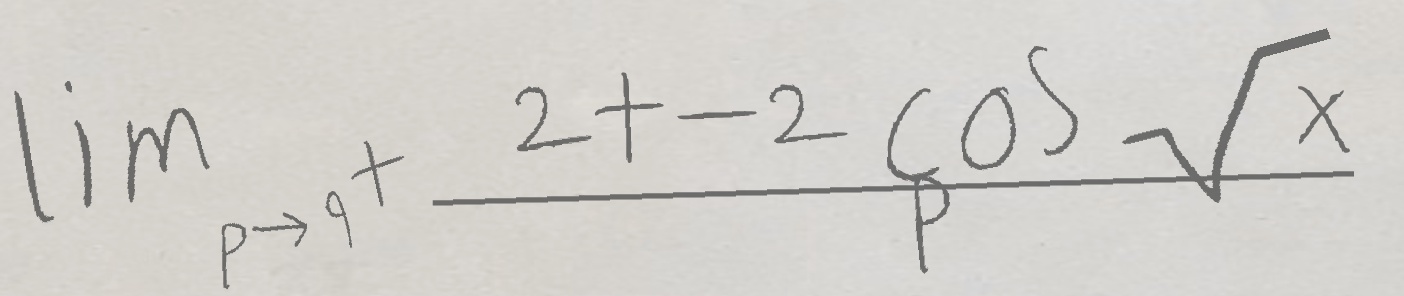 \lim_{p \to 9^+} \frac{2 + -2 \cos \sqrt{x}}{p}